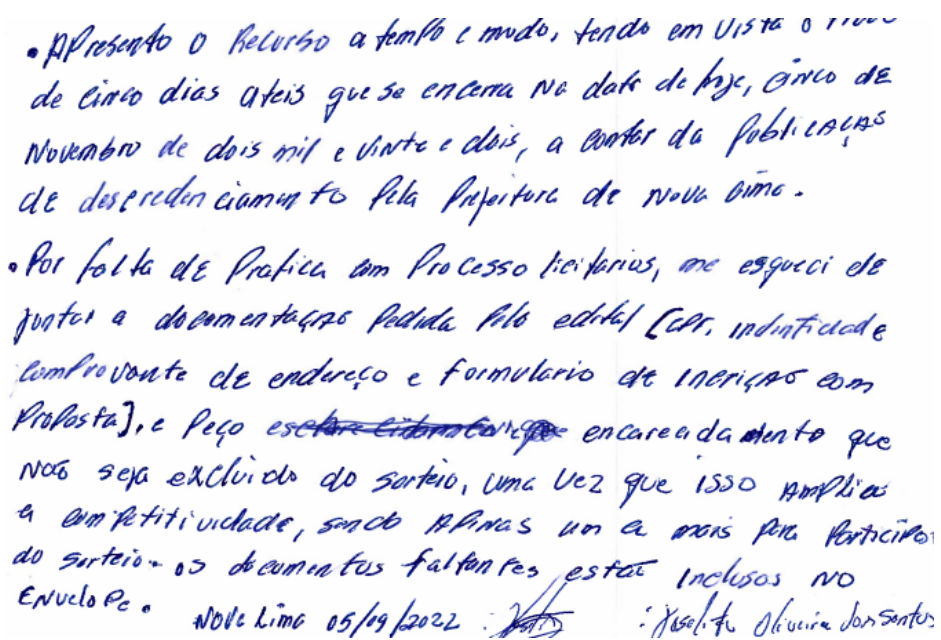 • APresento o Recurso a tempo e modo, tendo em vista o Prazo
de cinco dias uteis que se encerra na data de hoje, cinco de
Novembro de dois mil e vinte e dois, a contar da Publicação
de descredenciamento Pela Prefeitura de Nova Lima.
• Por falta de Pratica com Processo licitarios, me esqueci de
juntar a documentação Pedida Pelo edital [CPF, indintidade
comProvante de endereço e formulario de incrição com
ProPosta], e Peço encarecidamento que
não seja excluido do sorteio, uma vez que isso amplia
a competitividade, sendo apenas um a mais para Participar
do sorteio. os documentos faltantes estão inclusos no
EnveloPe. Nova Lima 05/09/2022 : Oliveira dos Santos